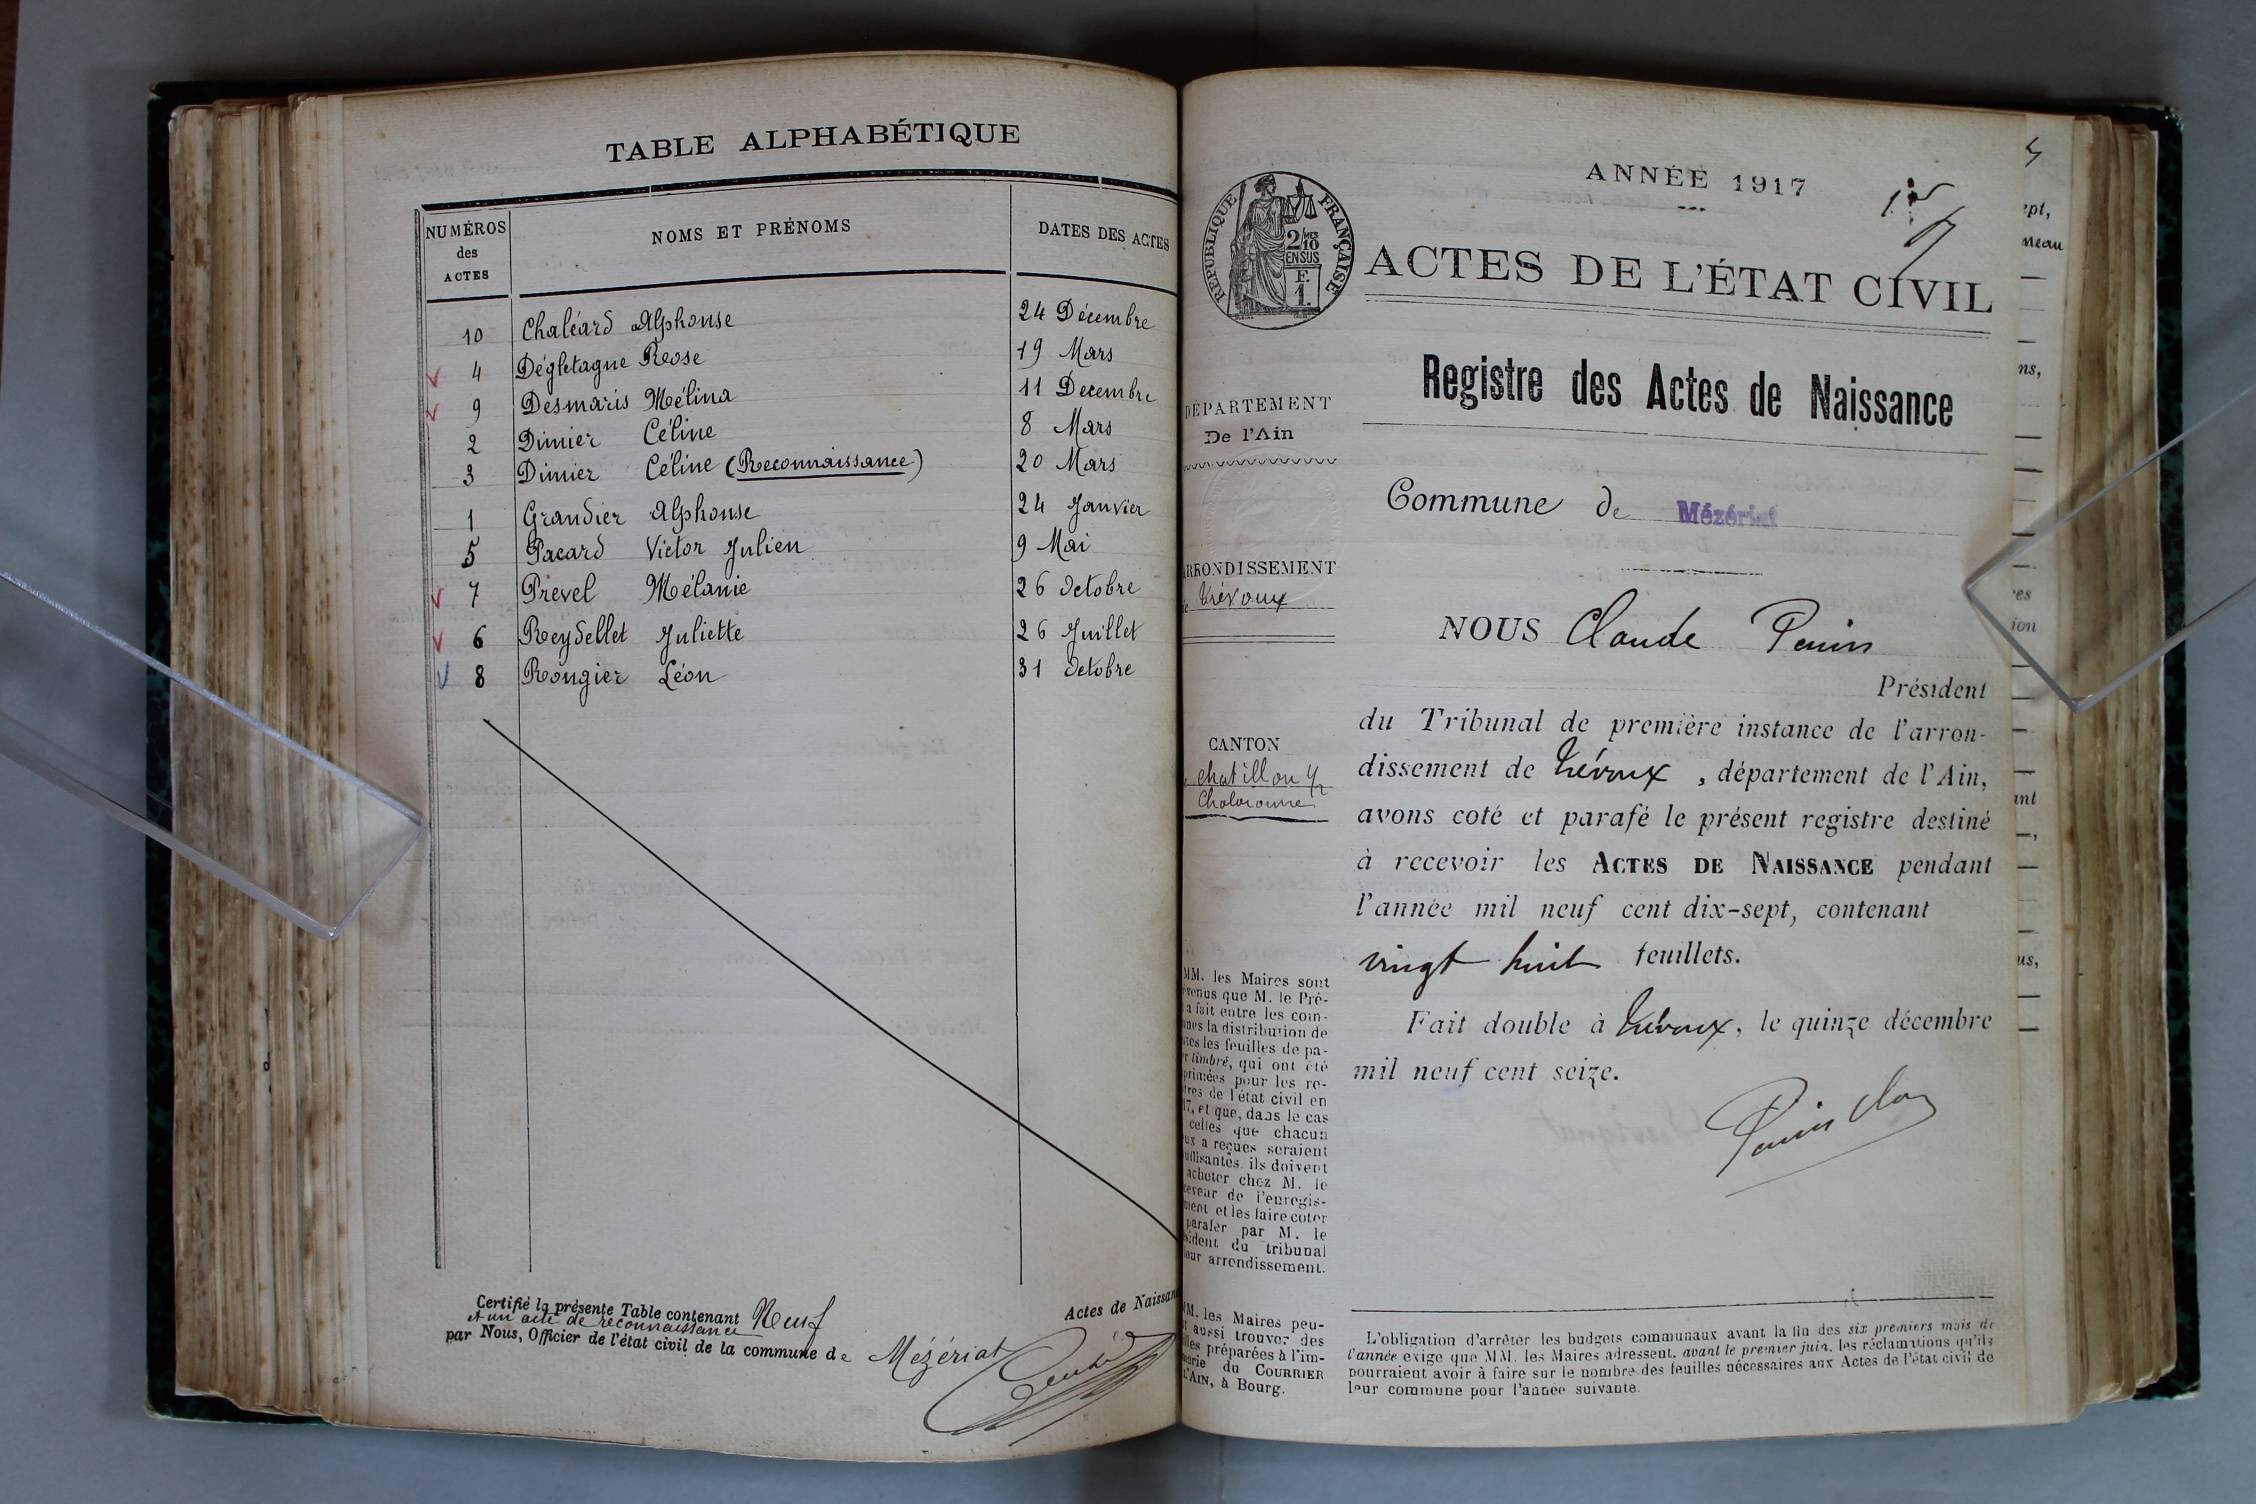 TABLE ALPHABÉTIQUE
NUMÉROS
des
ACTES
NOMS ET PRÉNOMS
DATES DES ACTES
10 Chaléard Alphonse 24 Décembre
4 Rose 19 Mars
9 Desmaris Mélina 11 Decembre
2 Dimier Céline 8 Mars
3 Dimier Céline (Reconnaissance) 20 Mars
1 Grandier Alphonse 24 Janvier
5 Pacard Victor Julien 9 Mai
7 Prevel Mélanie 26 Octobre
6 Reydellet Juliette 26 Juillet
8 Rougier Léon 31 Octobre
Certifié la présente Table contenant Neuf Actes de Naissan
et un acte de reconnaissance
par Nous, Officier de l'état civil de la commune de Mézériat
ANNÉE 1917
RÉPUBLIQUE FRANÇAISE
2/10
EN SUS
F.
1.
ACTES DE L'ÉTAT CIVIL
Registre des Actes de Naissance
DÉPARTEMENT
De l'Ain
Commune de Mézériat
ARRONDISSEMENT
Trévoux
CANTON
chatillon s/
Chalaronne
NOUS Claude
Président
du Tribunal de première instance de l'arron-
dissement de Trévoux, département de l'Ain,
avons coté et parafé le présent registre destiné
à recevoir les ACTES DE NAISSANCE pendant
l'année mil neuf cent dix-sept, contenant
vingt huit feuillets.
Fait double à Trévoux, le quinze décembre
mil neuf cent seize.
MM. les Maires sont
venus que M. le Pré-
a fait entre les com-
nes la distribution de
tes les feuilles de pa-
r timbré, qui ont été
primées pour les re-
tres de l'état civil en
17, et que, dans le cas
celles que chacun
ux a reçues seraient
uffisantes, ils doivent
acheter chez M. le
ceveur de l'enregis-
ment et les faire coter
parafer par M. le
sident du tribunal
leur arrondissement.
MM. les Maires peu-
t aussi trouver des
illes préparées à l'im-
merie du COURRIER
L'AIN, à Bourg.
L'obligation d'arrêter les budgets communaux avant la fin des six premiers mois de
l'année exige que MM. les Maires adressent, avant le premier juin, les réclamations qu'ils
pourraient avoir à faire sur le nombre des feuilles nécessaires aux Actes de l'état civil de
leur commune pour l'année suivante.